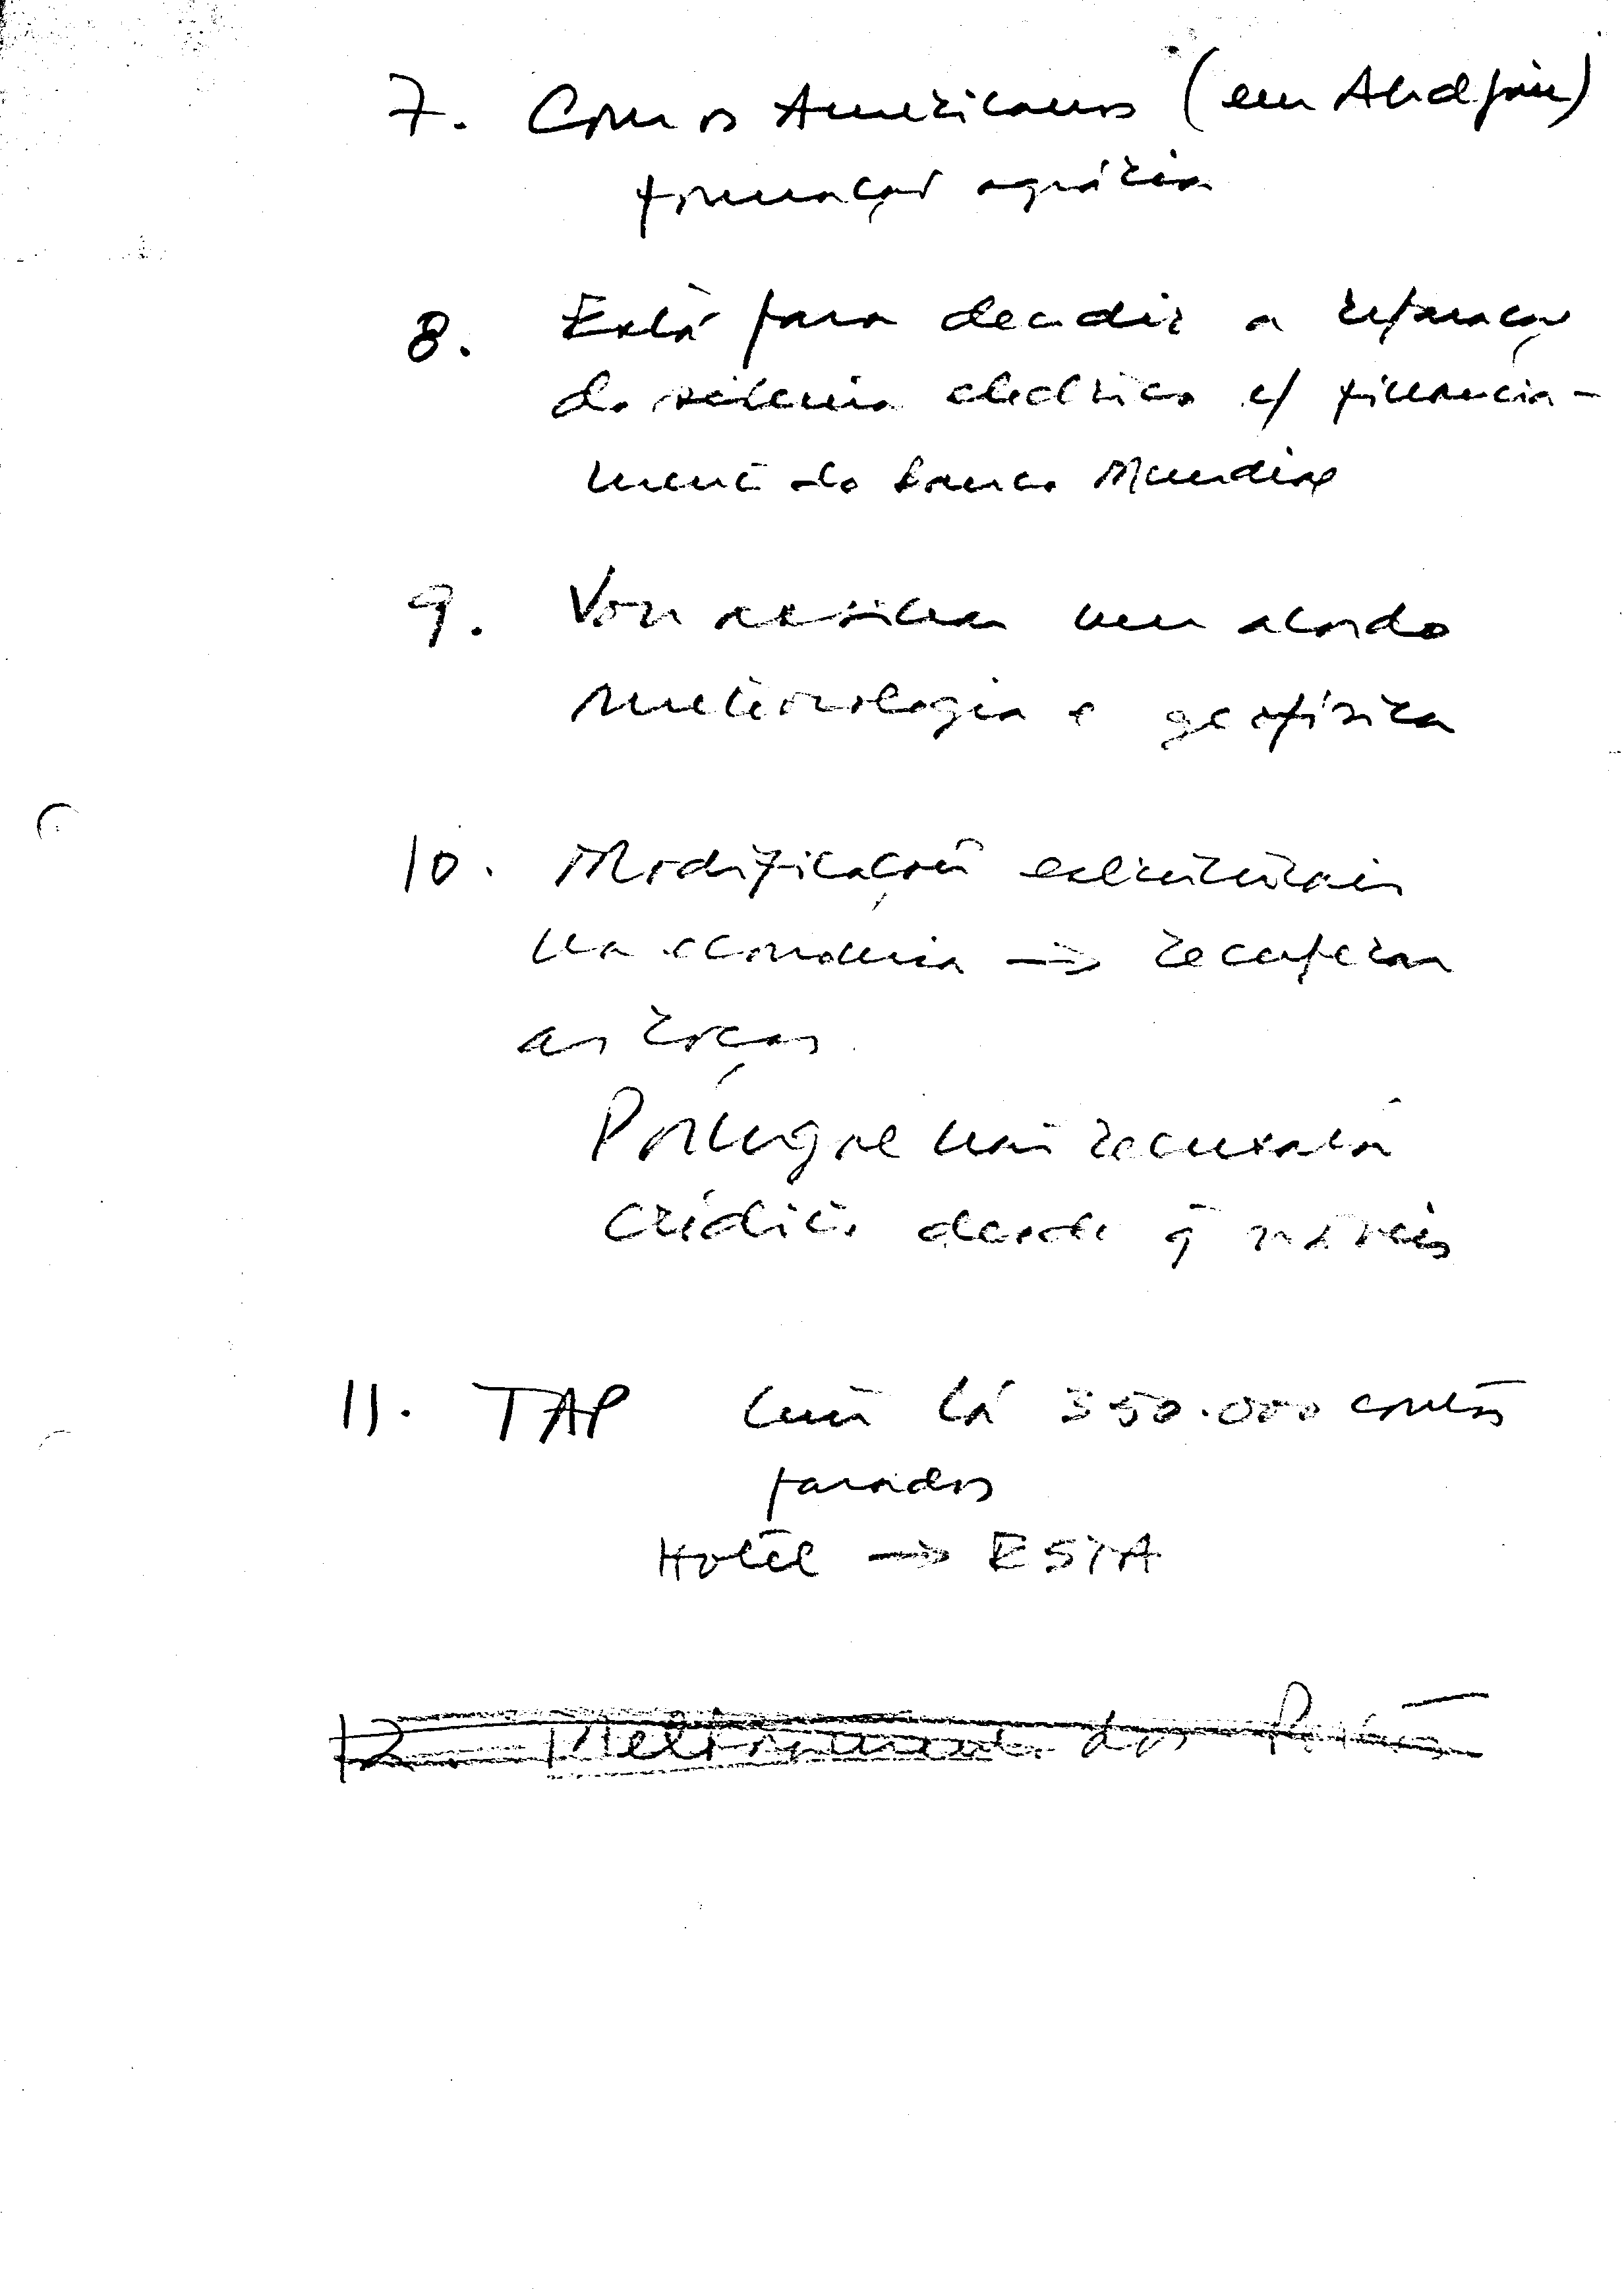 7. Com os Americanos (em Abidjan)
formação agrária
8. Está para decidir a reparação
do sistema eléctrico c/ financia-
mento do Banco Mundial
9. Vou assinar um acordo
meteorologia e geofísica
10. Modificações estruturais
na economia → recuperar
as roças
Portugal não recusará
crédito desde q
11. TAP tem lá 350.000 contos
parados
Hotel → ESTA
12. Melhoramento dos Portos